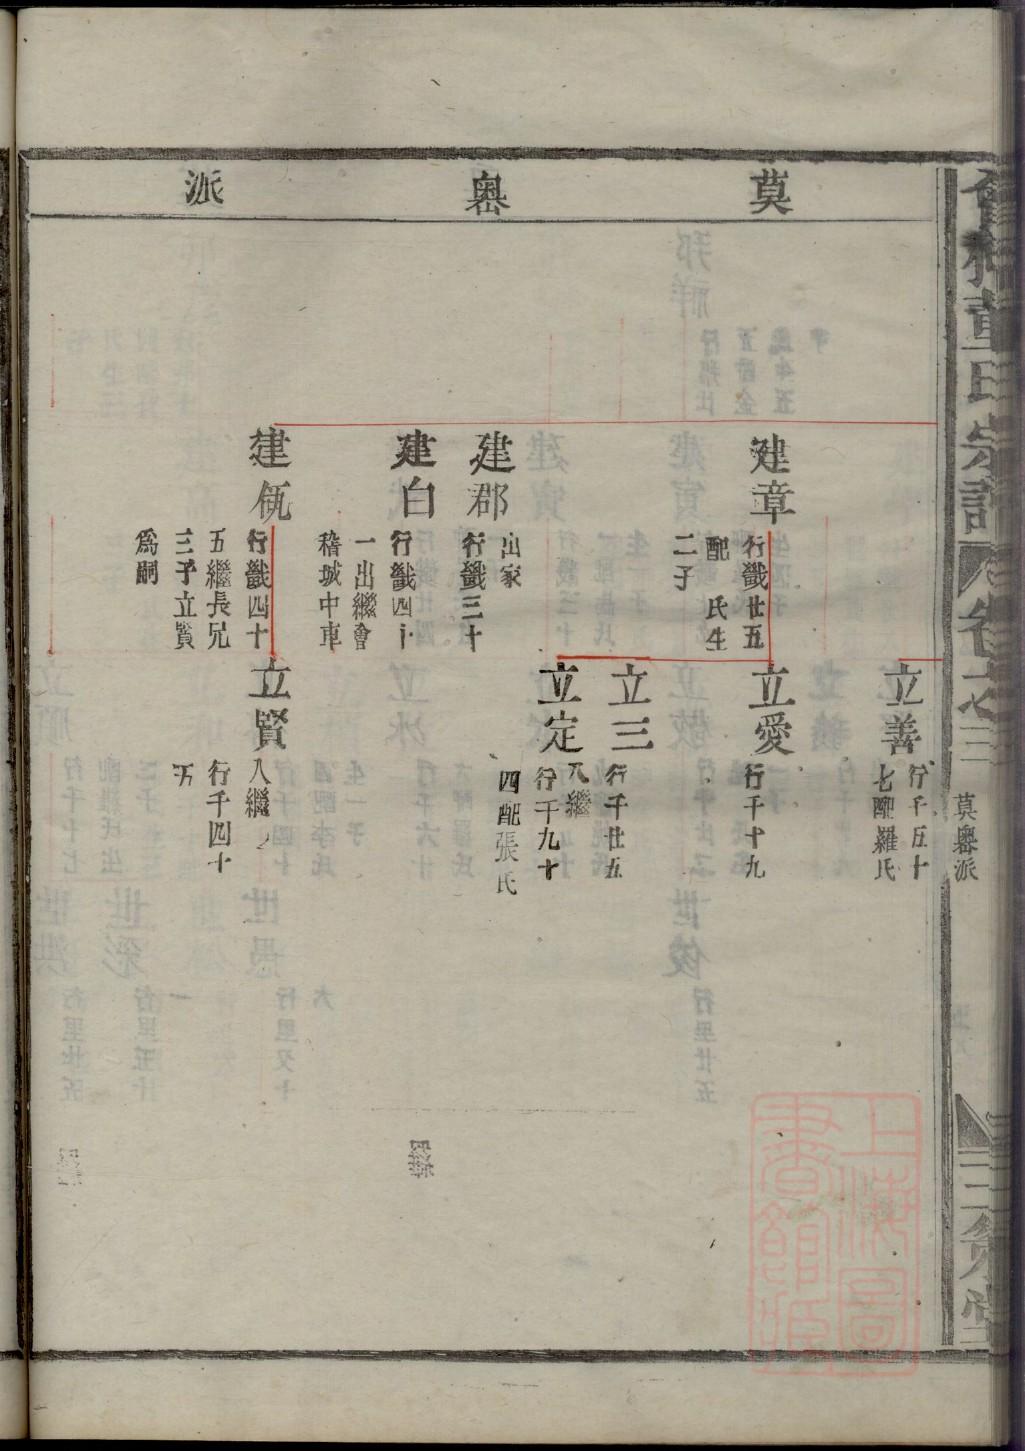 莫 嶴 派
會稽董氏宗譜
卷之三
莫嶴派
三策堂
立善
行千五十
七配羅氏
建章
行戩廿五
配 氏生
二子
立愛
行千十九
立三
行千廿五
立定
行千九十
四配張氏
建郡
行戩三十
出家
建白
行戩四十
一出繼會
稽城中車
建佤
行戩四十
五繼長兄
三子立賢
爲嗣
立賢
入繼
行千四十
五
上海圖書館藏